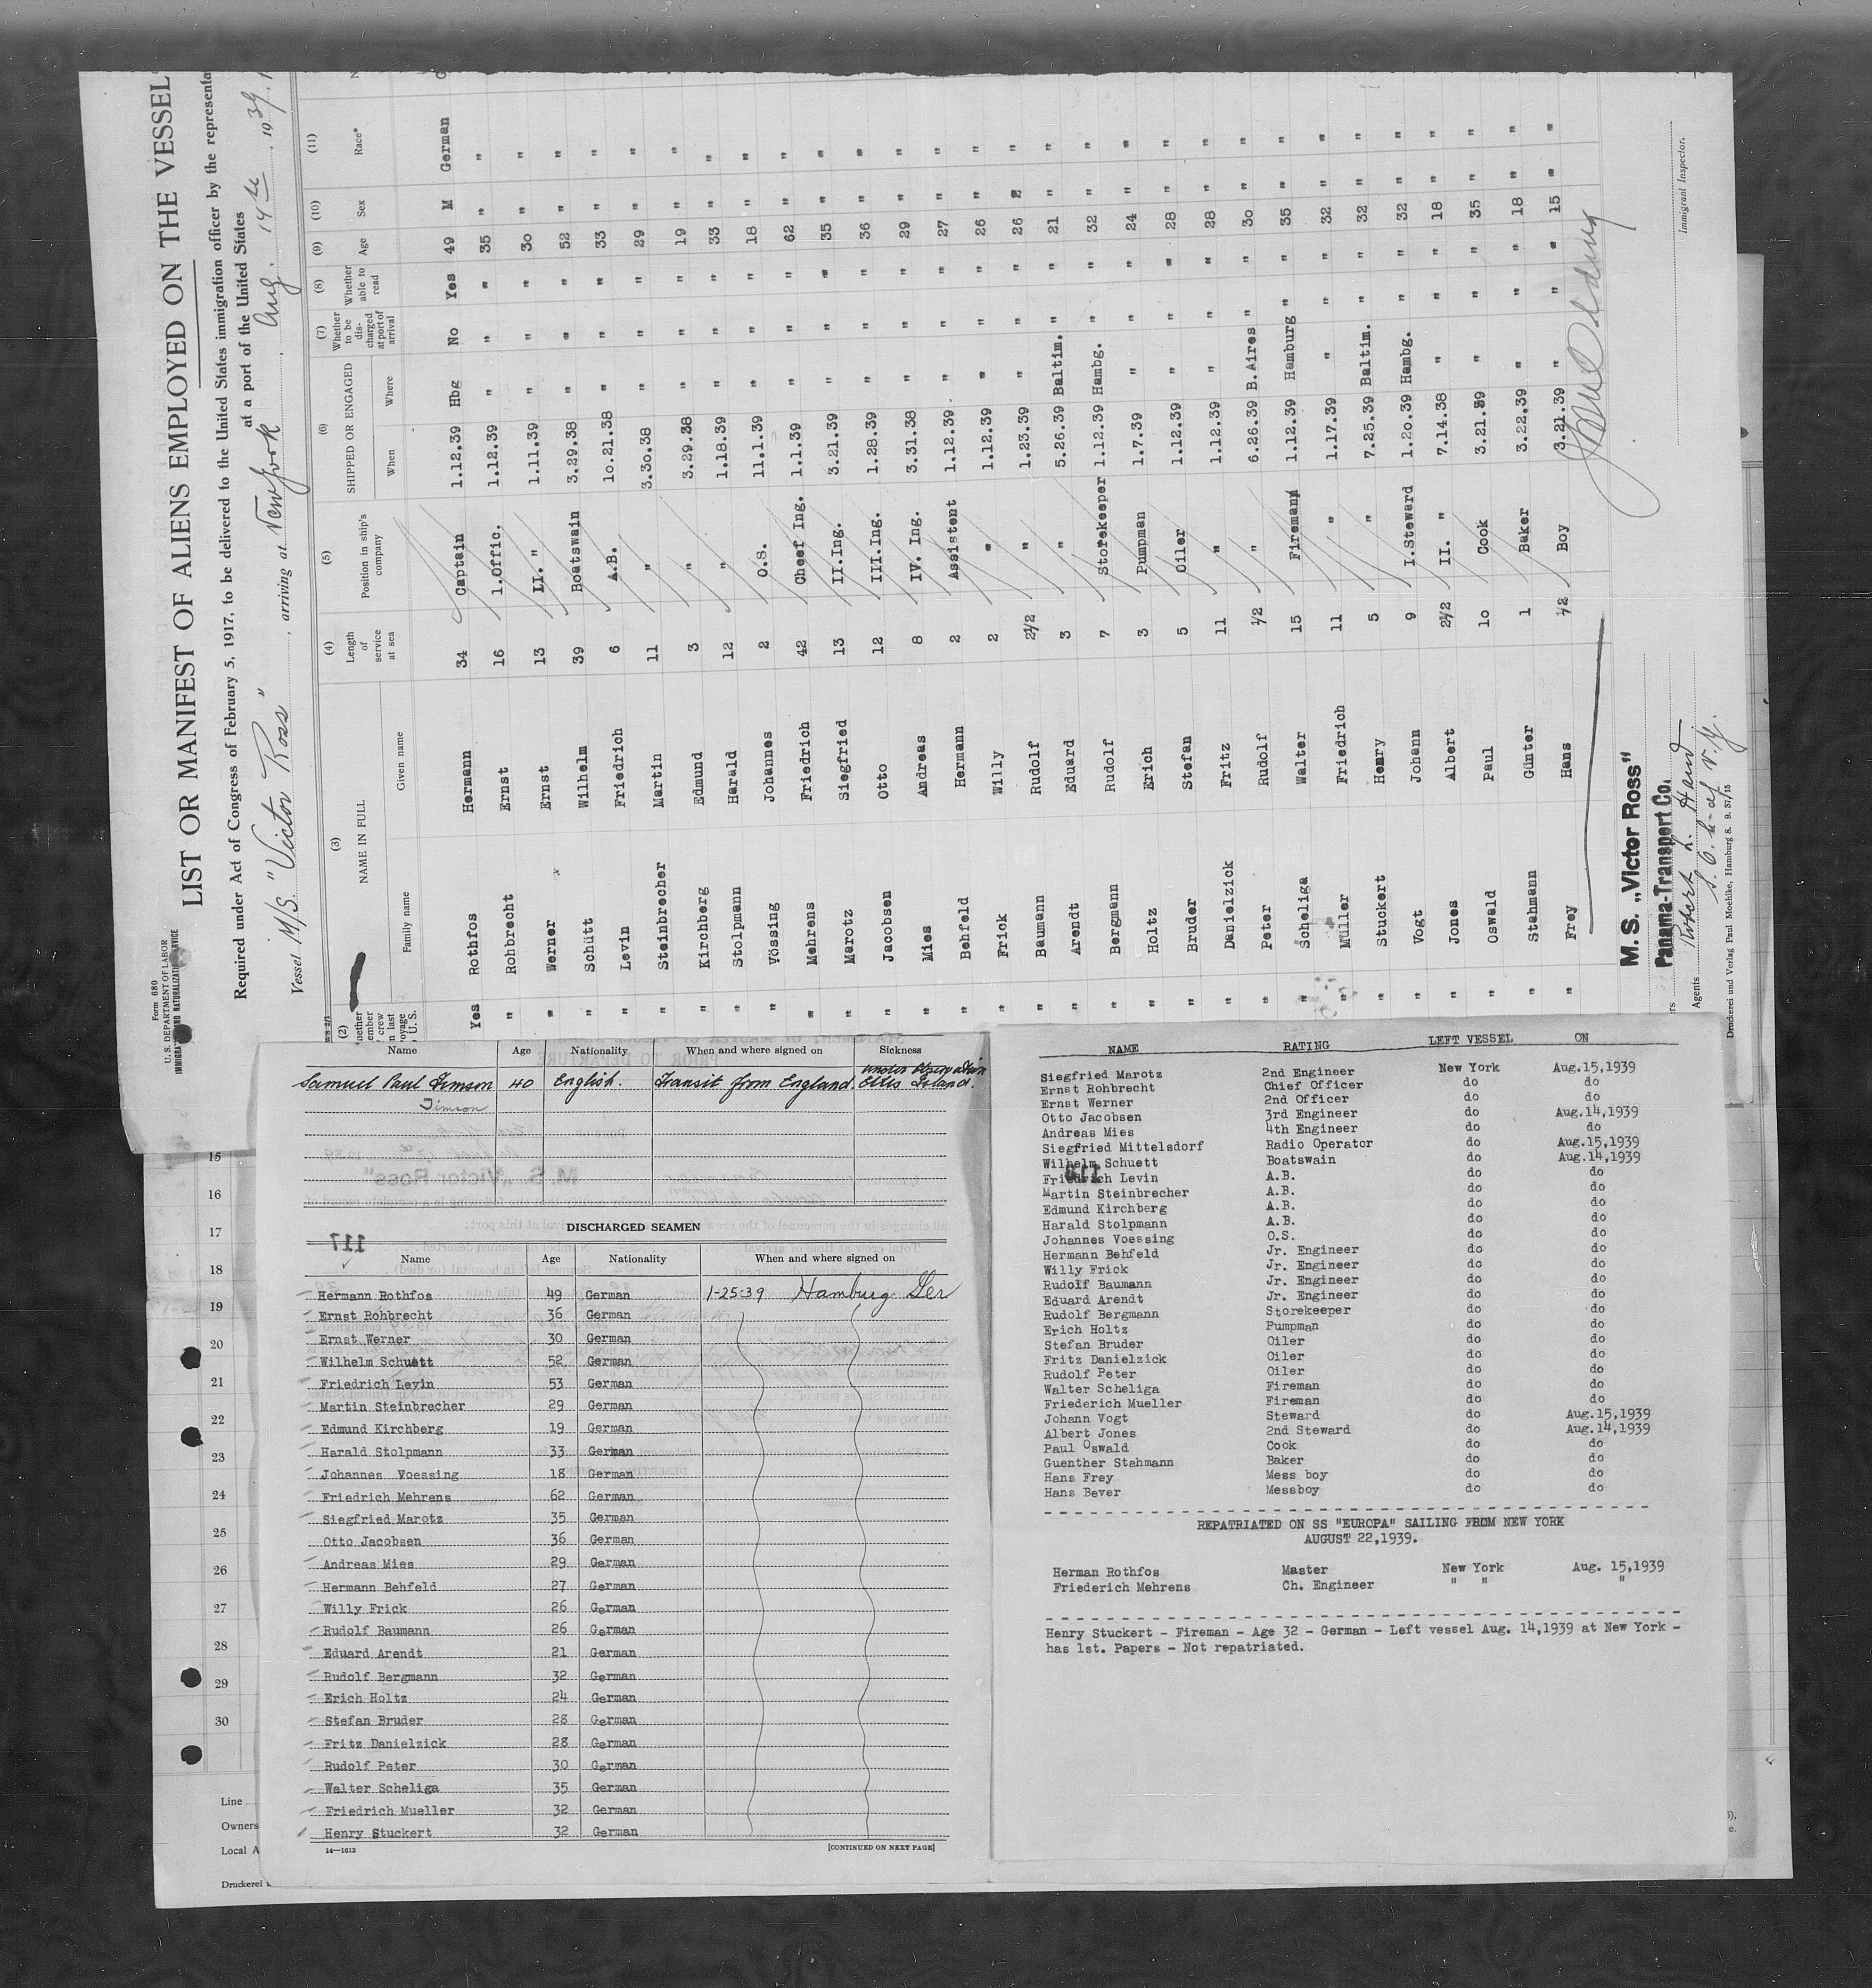 Form 680
U. S. DEPARTMENT OF LABOR
IMMIGRATION AND NATURALIZATION SERVICE
LIST OR MANIFEST OF ALIENS EMPLOYED ON THE VESSEL
Required under Act of Congress of February 5, 1917, to be delivered to the United States immigration officer by the
at a port of the United States
Vessel M/S. "Victor Ross", arriving at New York, Aug. 14th, 1939
(2) (3) (4) (5) (6) (7) (8) (9) (10) (11)
NAME IN FULL Length of service at sea Position in ship's company SHIPPED OR ENGAGED Whether to be discharged at port of arrival Whether able to read Age Sex Race*
Family name Given name When Where
Yes Rothfos Hermann 34 Captain 1.12.39 Hbg No Yes 49 M German
" Rohbrecht Ernst 16 1.Offic. 1.12.39 " " " 35 " "
" Werner Ernst 13 II. " 1.11.39 " " " 30 " "
" Schütt Wilhelm 39 Boatswain 3.29.38 " " " 52 " "
" Levin Friedrich 6 A.B. 10.21.38 " " " 33 " "
" Steinbrecher Martin 11 " 3.30.38 " " " 29 " "
" Kirchberg Edmund 3 " 3.29.38 " " " 19 " "
" Stolpmann Harald 12 " 1.18.39 " " " 33 " "
" Vössing Johannes 2 O.S. 11.1.39 " " " 18 " "
" Mehrens Friedrich 42 Cheef Ing. 1.1.39 " " " 62 " "
" Marotz Siegfried 13 II.Ing. 3.21.39 " " " 35 " "
" Jacobsen Otto 12 III.Ing. 1.28.39 " " " 36 " "
" Mies Andreas 8 IV. Ing. 3.31.38 " " " 29 " "
" Behfeld Hermann 2 Assistent 1.12.39 " " " 27 " "
" Frick Willy 2 " 1.12.39 " " " 26 " "
" Baumann Rudolf 2½ " 1.23.39 " " " 26 " "
" Arendt Eduard 3 " 5.26.39 Baltim. " " 21 " "
" Bergmann Rudolf 7 Storekeeper 1.12.39 Hambg. " " 32 " "
" Holtz Erich 3 Pumpman 1.7.39 " " " 24 " "
" Bruder Stefan 5 Oiler 1.12.39 " " " 28 " "
" Danielzick Fritz 11 " 1.12.39 " " " 28 " "
" Peter Rudolf ½ " 6.26.39 B.Aires " " 30 " "
" Scheliga Walter 15 Fireman 1.12.39 Hamburg " " 35 " "
" Müller Friedrich 11 " 1.17.39 " " " 32 " "
" Stuckert Henry 5 " 7.25.39 Baltim. " " 32 " "
" Vogt Johann 9 I.Steward 1.20.39 Hambg. " " 32 " "
" Jones Albert 2½ II. " 7.14.38 " " " 18 " "
" Oswald Paul 10 Cook 3.21.39 " " " 35 " "
" Stahmann Günter 1 Baker 3.22.39 " " " 18 " "
" Frey Hans ½ Boy 3.21.39 " " " 15 " "
M. S. „Victor Ross"
Panama-Transport Co.
Agents Robert L. Hand
S. O. Co. of N. Y.
Immigrant Inspector.
Druckerei und Verlag Paul Moehlke, Hamburg 8. 9. 37/15
Name Age Nationality When and where signed on Sickness
Samuel Paul Timson 40 English. Transit from England under observation Ellis Island.
Timson
M. S. „Victor Ross"
DISCHARGED SEAMEN
117
Name Age Nationality When and where signed on
Hermann Rothfos 49 German 1-25-39 Hamburg Ger
Ernst Rohbrecht 36 German
Ernst Werner 30 German
Wilhelm Schuett 52 German
Friedrich Levin 53 German
Martin Steinbrecher 29 German
Edmund Kirchberg 19 German
Harald Stolpmann 33 German
Johannes Voessing 18 German
Friedrich Mehrens 62 German
Siegfried Marotz 35 German
Otto Jacobsen 36 German
Andreas Mies 29 German
Hermann Behfeld 27 German
Willy Frick 26 German
Rudolf Baumann 26 German
Eduard Arendt 21 German
Rudolf Bergmann 32 German
Erich Holtz 24 German
Stefan Bruder 28 German
Fritz Danielzick 28 German
Rudolf Peter 30 German
Walter Scheliga 35 German
Friedrich Mueller 32 German
Henry Stuckert 32 German
14—1613 [CONTINUED ON NEXT PAGE]
15
16
17
18
19
20
21
22
23
24
25
26
27
28
29
30
Line
Owners
Local A
Druckerei
NAME RATING LEFT VESSEL ON
Siegfried Marotz 2nd Engineer New York Aug.15,1939
Ernst Rohbrecht Chief Officer do do
Ernst Werner 2nd Officer do do
Otto Jacobsen 3rd Engineer do Aug.14,1939
Andreas Mies 4th Engineer do do
Siegfried Mittelsdorf Radio Operator do Aug.15,1939
Wilhelm Schuett Boatswain do Aug.14,1939
Friedrich Levin A.B. do do
Martin Steinbrecher A.B. do do
Edmund Kirchberg A.B. do do
Harald Stolpmann A.B. do do
Johannes Voessing O.S. do do
Hermann Behfeld Jr. Engineer do do
Willy Frick Jr. Engineer do do
Rudolf Baumann Jr. Engineer do do
Eduard Arendt Jr. Engineer do do
Rudolf Bergmann Storekeeper do do
Erich Holtz Pumpman do do
Stefan Bruder Oiler do do
Fritz Danielzick Oiler do do
Rudolf Peter Oiler do do
Walter Scheliga Fireman do do
Friederich Mueller Fireman do do
Johann Vogt Steward do Aug.15,1939
Albert Jones 2nd Steward do Aug.14,1939
Paul Oswald Cook do do
Guenther Stahmann Baker do do
Hans Frey Mess boy do do
Hans Bever Messboy do do
REPATRIATED ON SS "EUROPA" SAILING FROM NEW YORK
AUGUST 22,1939.
Herman Rothfos Master New York Aug. 15,1939
Friederich Mehrens Ch. Engineer " " "
Henry Stuckert - Fireman - Age 32 - German - Left vessel Aug. 14,1939 at New York -
has 1st. Papers - Not repatriated.